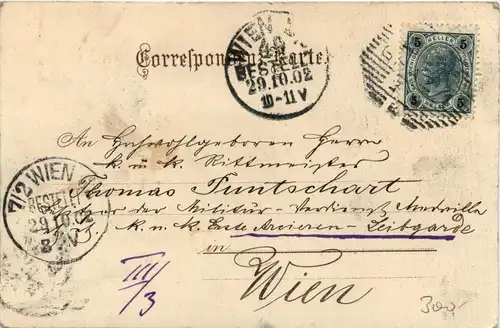 Correspondenz-Karte.
WIEN
BESTELLT
29.10.02
10-11V
5 HELLER 5
5 5
An Hochwolgeboren Herrn
k. u. k. Rittmeister
Thomas Puntschart
der Militär-Verdienst Medaille
k. u. k. Erste Arcieren-Leibgarde
in
Wien
7/2 WIEN
BESTELLT
29.10.02
8 V
III/3
300